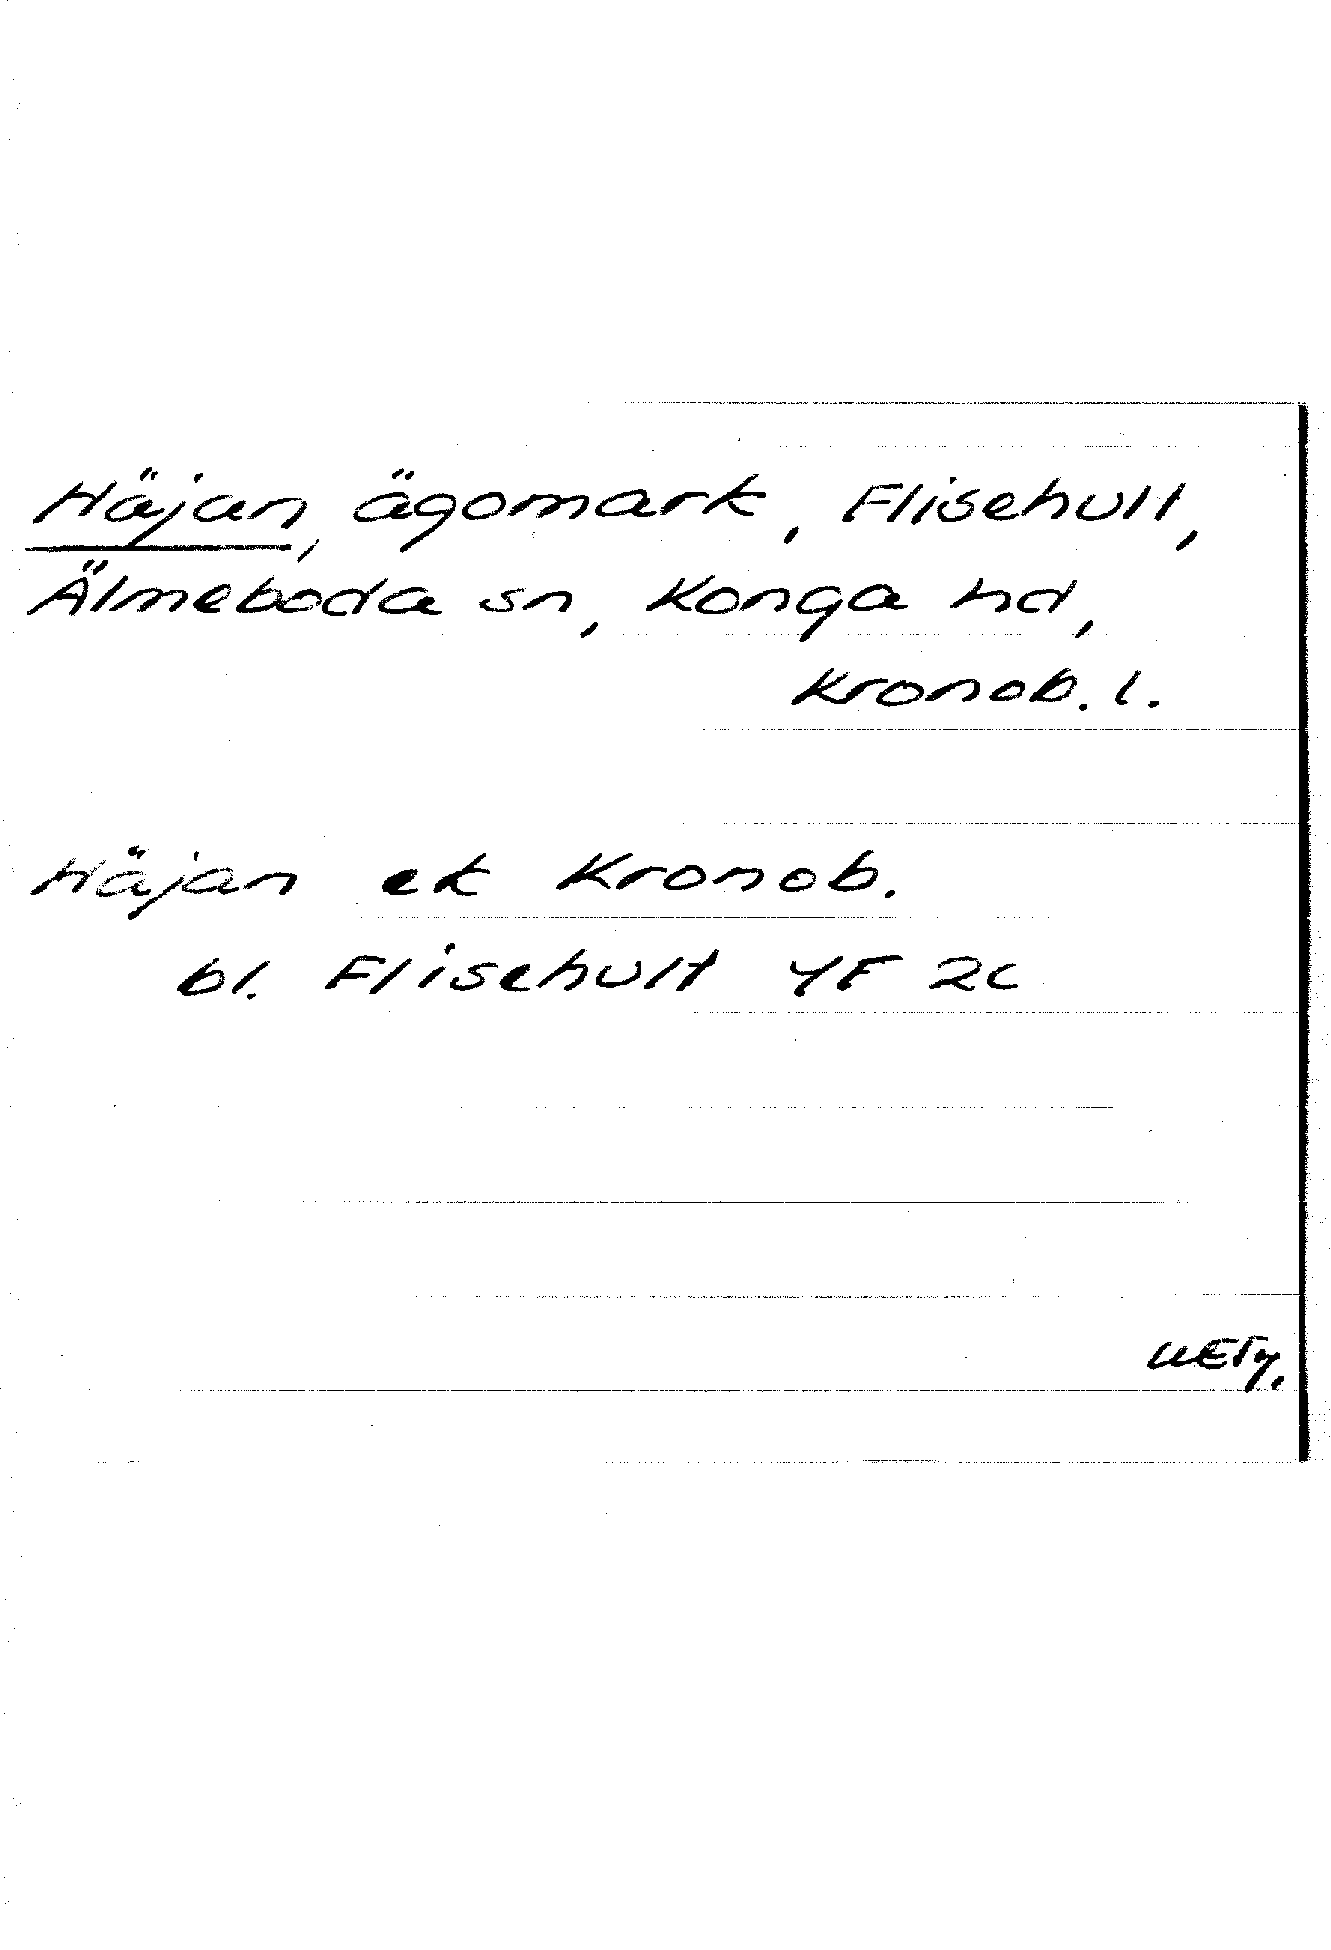 Häjan, ägomark, Flisehult,
Älmeboda sn, Konga hd,
Kronob. l.
Häjan ek Kronob.
bl. Flisehult 4F 2c